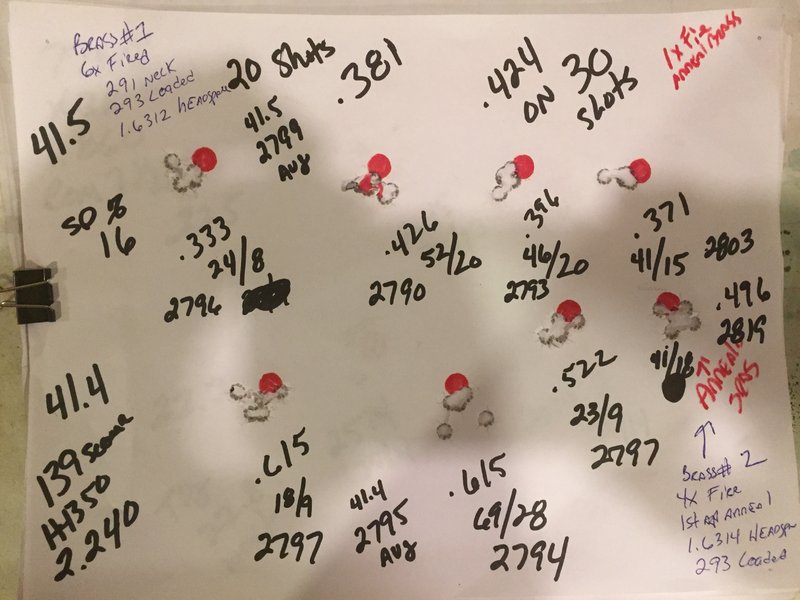 BRASS #1
6x Fired
291 Neck
293 Loaded
1.6312 HEADSPACE
41.5
20 Shots
41.5
2799
AVG
.381
.424
ON 30
Shots
1x Fire
ANNEAL BRASS
SD %
16
.333
24/8
2796
.426
52/20
2790
.396
46/20
2793
.371
41/15
2803
.496
2819
41/18
ANNEAL
5RDS
.522
23/9
2797
41.4
139 Scenar
H4350
2.240
.615
18/9
2797
41.4
2795
AVG
.615
69/28
2794
BRASS# 2
4x Fire
1st ANNEAL
1.6314 HEADSPA
293 Loaded